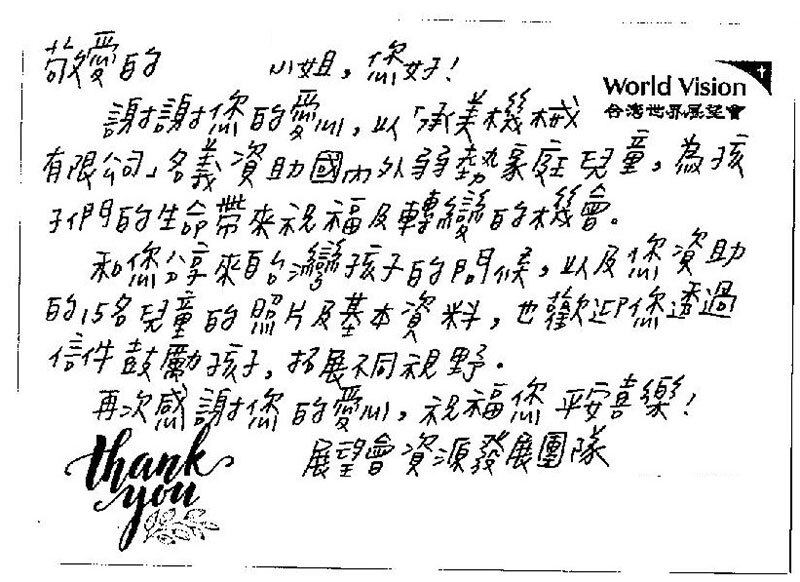 敬愛的 小姐，您好！
World Vision
台灣世界展望會
謝謝您的愛心，以「承美機械
有限公司」名義資助國內外弱勢家庭兒童，為孩
子們的生命帶來祝福及轉變的機會。
和您分享來自台灣孩子的問候，以及您資助
的15名兒童的照片及基本資料，也歡迎您透過
信件鼓勵孩子，拓展不同視野。
再次感謝您的愛心，祝福您平安喜樂！
展望會資源發展團隊
thank
you